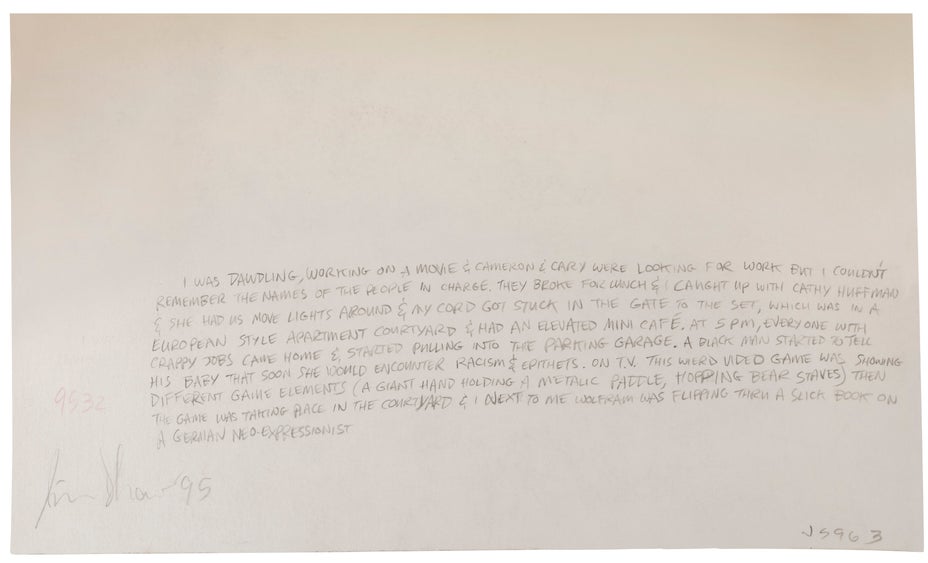 I WAS DAWDLING, WORKING ON A MOVIE & CAMERON & CARY WERE LOOKING FOR WORK BUT I COULDN'T
REMEMBER THE NAMES OF THE PEOPLE IN CHARGE. THEY BROKE FOR LUNCH & I CAUGHT UP WITH CATHY HUFFMAN
& SHE HAD US MOVE LIGHTS AROUND & MY CORD GOT STUCK IN THE GATE TO THE SET, WHICH WAS IN A
EUROPEAN STYLE APARTMENT COURTYARD & HAD AN ELEVATED MINI CAFÉ. AT 5 PM, EVERYONE WITH
CRAPPY JOBS CAME HOME & STARTED PULLING INTO THE PARKING GARAGE. A BLACK MAN STARTED TO TELL
HIS BABY THAT SOON SHE WOULD ENCOUNTER RACISM & EPITHETS. ON T.V. THIS WIERD VIDEO GAME WAS SHOWING
DIFFERENT GAME ELEMENTS (A GIANT HAND HOLDING A METALIC PADDLE, HOPPING BEAR STAVES) THEN
THE GAME WAS TAKING PLACE IN THE COURTYARD & I NEXT TO ME WOLFRAM WAS FLIPPING THRU A SLICK BOOK ON
A GERMAN NEO-EXPRESSIONIST
9532
Jim Shaw '95
JS96 3